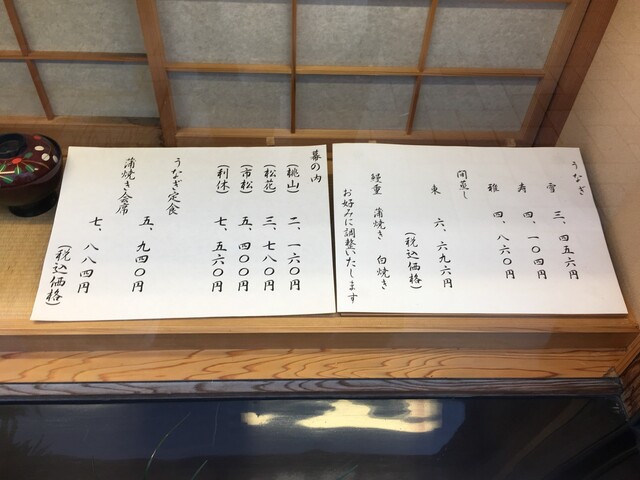 うなぎ
雪 三、四五六円
寿 四、一〇四円
雅 四、八六〇円
間蒸し
東 六、六九六円
(税込価格)
経重 蒲焼き 白焼き
お好みに調整いたします
幕の内
(桃山) 二、一六〇円
(松花) 三、七八〇円
(市松) 五、四〇〇円
(利休) 七、五六〇円
うなぎ定食
五、九四〇円
蒲焼き会席
七、八八四円
(税込価格)